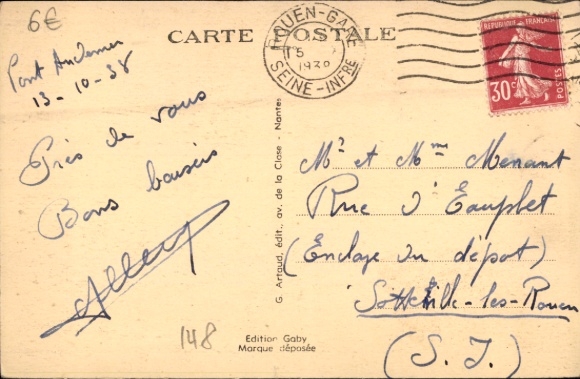 6€
CARTE POSTALE
ROUEN-GARE
15
1938
SEINE-INFRE
REPUBLIQUE FRANÇAISE
30c
POSTES
Pont Audemer
13-10-38
Près de vous
Bons baisers
G. Artaud, édit., av. de la Close - Nantes
Mr et Mme Menant
Rue d'Eauplet
(Enclage du dépôt)
Sotteville-les-Rouen
(S. I.)
148
Edition Gaby
Marque déposée